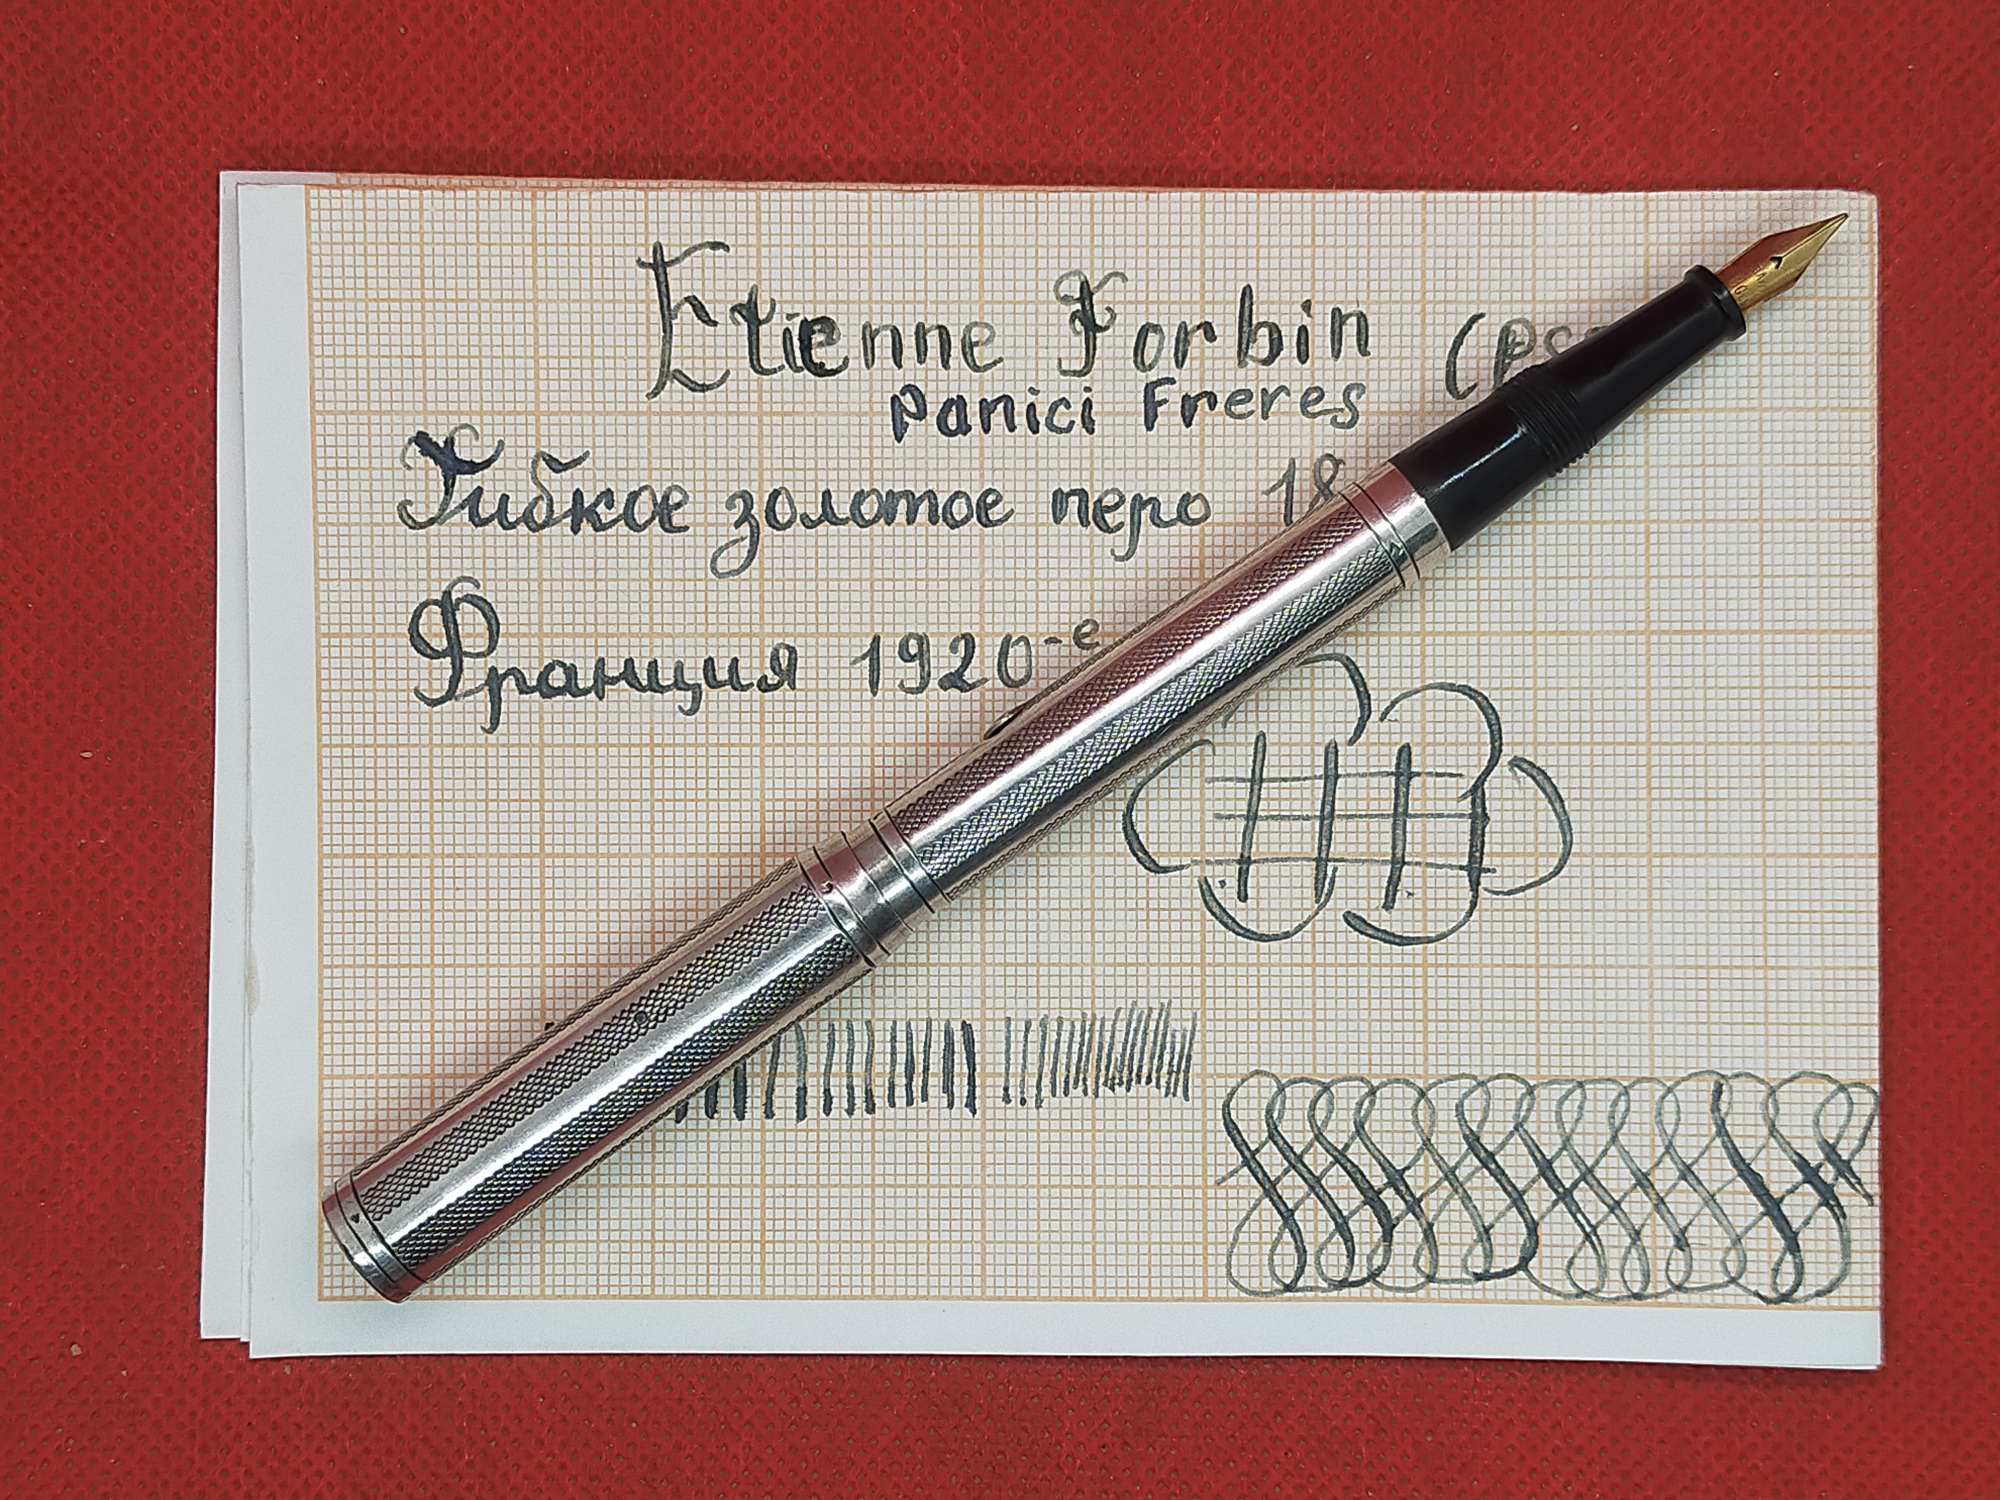 Etienne Forbin
Panici Freres
Гибкое золотое перо 18
Франция 1920-е